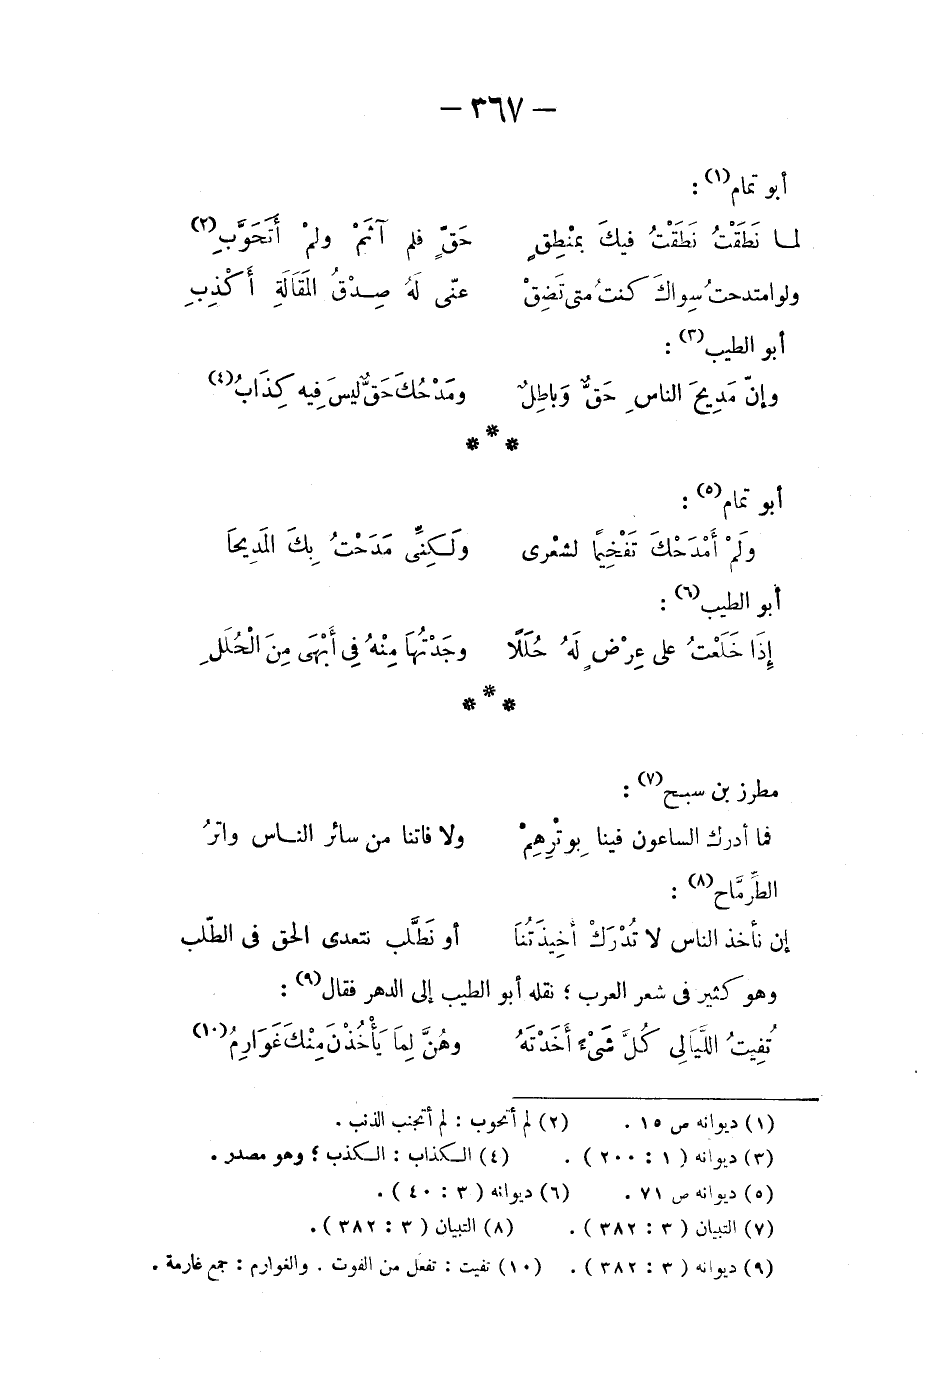 — ٣٦٧ —
أبو تمام(١) :
لما نَطَقْتُ نَطَقْتُ فيكَ بمنْطِقٍ حَقٍّ فلم آثَمْ ولمْ أَتَحَوَّبِ(٢)
ولو امتدحتُ سِواكَ كنتُ متى تَضِقْ عنّى لَهُ صِدْقُ المَقَالَةِ أَكْذِبِ
أبو الطيب(٣) :
وإنّ مَدِيحَ الناسِ حَقٌّ وَباطِلٌ ومَدْحُكَ حَقٌّ ليسَ فِيه كِذَابُ(٤)
* * *
أبو تمام(٥) :
ولَمْ أَمْدَحْكَ تَفْخِيمًا لشعْرى ولَـكِنِّى مَدَحْتُ بِكَ المَدِيحَا
أبو الطيب(٦) :
إِذَا خَلَعْتُ على عِرْضٍ لَهُ حُلَلًا وجَدْتُهَا مِنْهُ فِى أَبْهَى مِنَ الْحُلَلِ
* * *
مطرز بن سبح(٧) :
فما أدرك الساعون فينا بِوتْرِهِمْ ولا فاتنا من سائر النـاس واترُ
الطِّرِمَّاح(٨) :
إن نأخذ الناس لا تُدْرَكْ أخِيذَتُنَا أو نَطَّلب نتعدى الحق فى الطّلب
وهو كثير فى شعر العرب ؛ نقله أبو الطيب إلى الدهر فقال(٩) :
تُفِيتُ اللَّيَالِى كُلَّ شَىْءٍ أَخَذْتَهُ وهُنَّ لِمَا يَأْخُذْنَ مِنْكَ غَوَارِمُ(١٠)
(١) ديوانه ص ١٥ . (٢) لم أتحوب : لم أتجنب الذنب .
(٣) ديوانه ( ١ : ٢٠٠ ) . (٤) الـكذاب : الـكذب ؛ وهو مصدر .
(٥) ديوانه ص ٧١ . (٦) ديوانه ( ٣ : ٤٠ ) .
(٧) التبيان ( ٣ : ٣٨٢ ) . (٨) التبيان ( ٣ : ٣٨٢ ) .
(٩) ديوانه ( ٣ : ٣٨٢ ) . (١٠) تفيت : تفعل من الفوت . والغوارم : جمع غارمة .